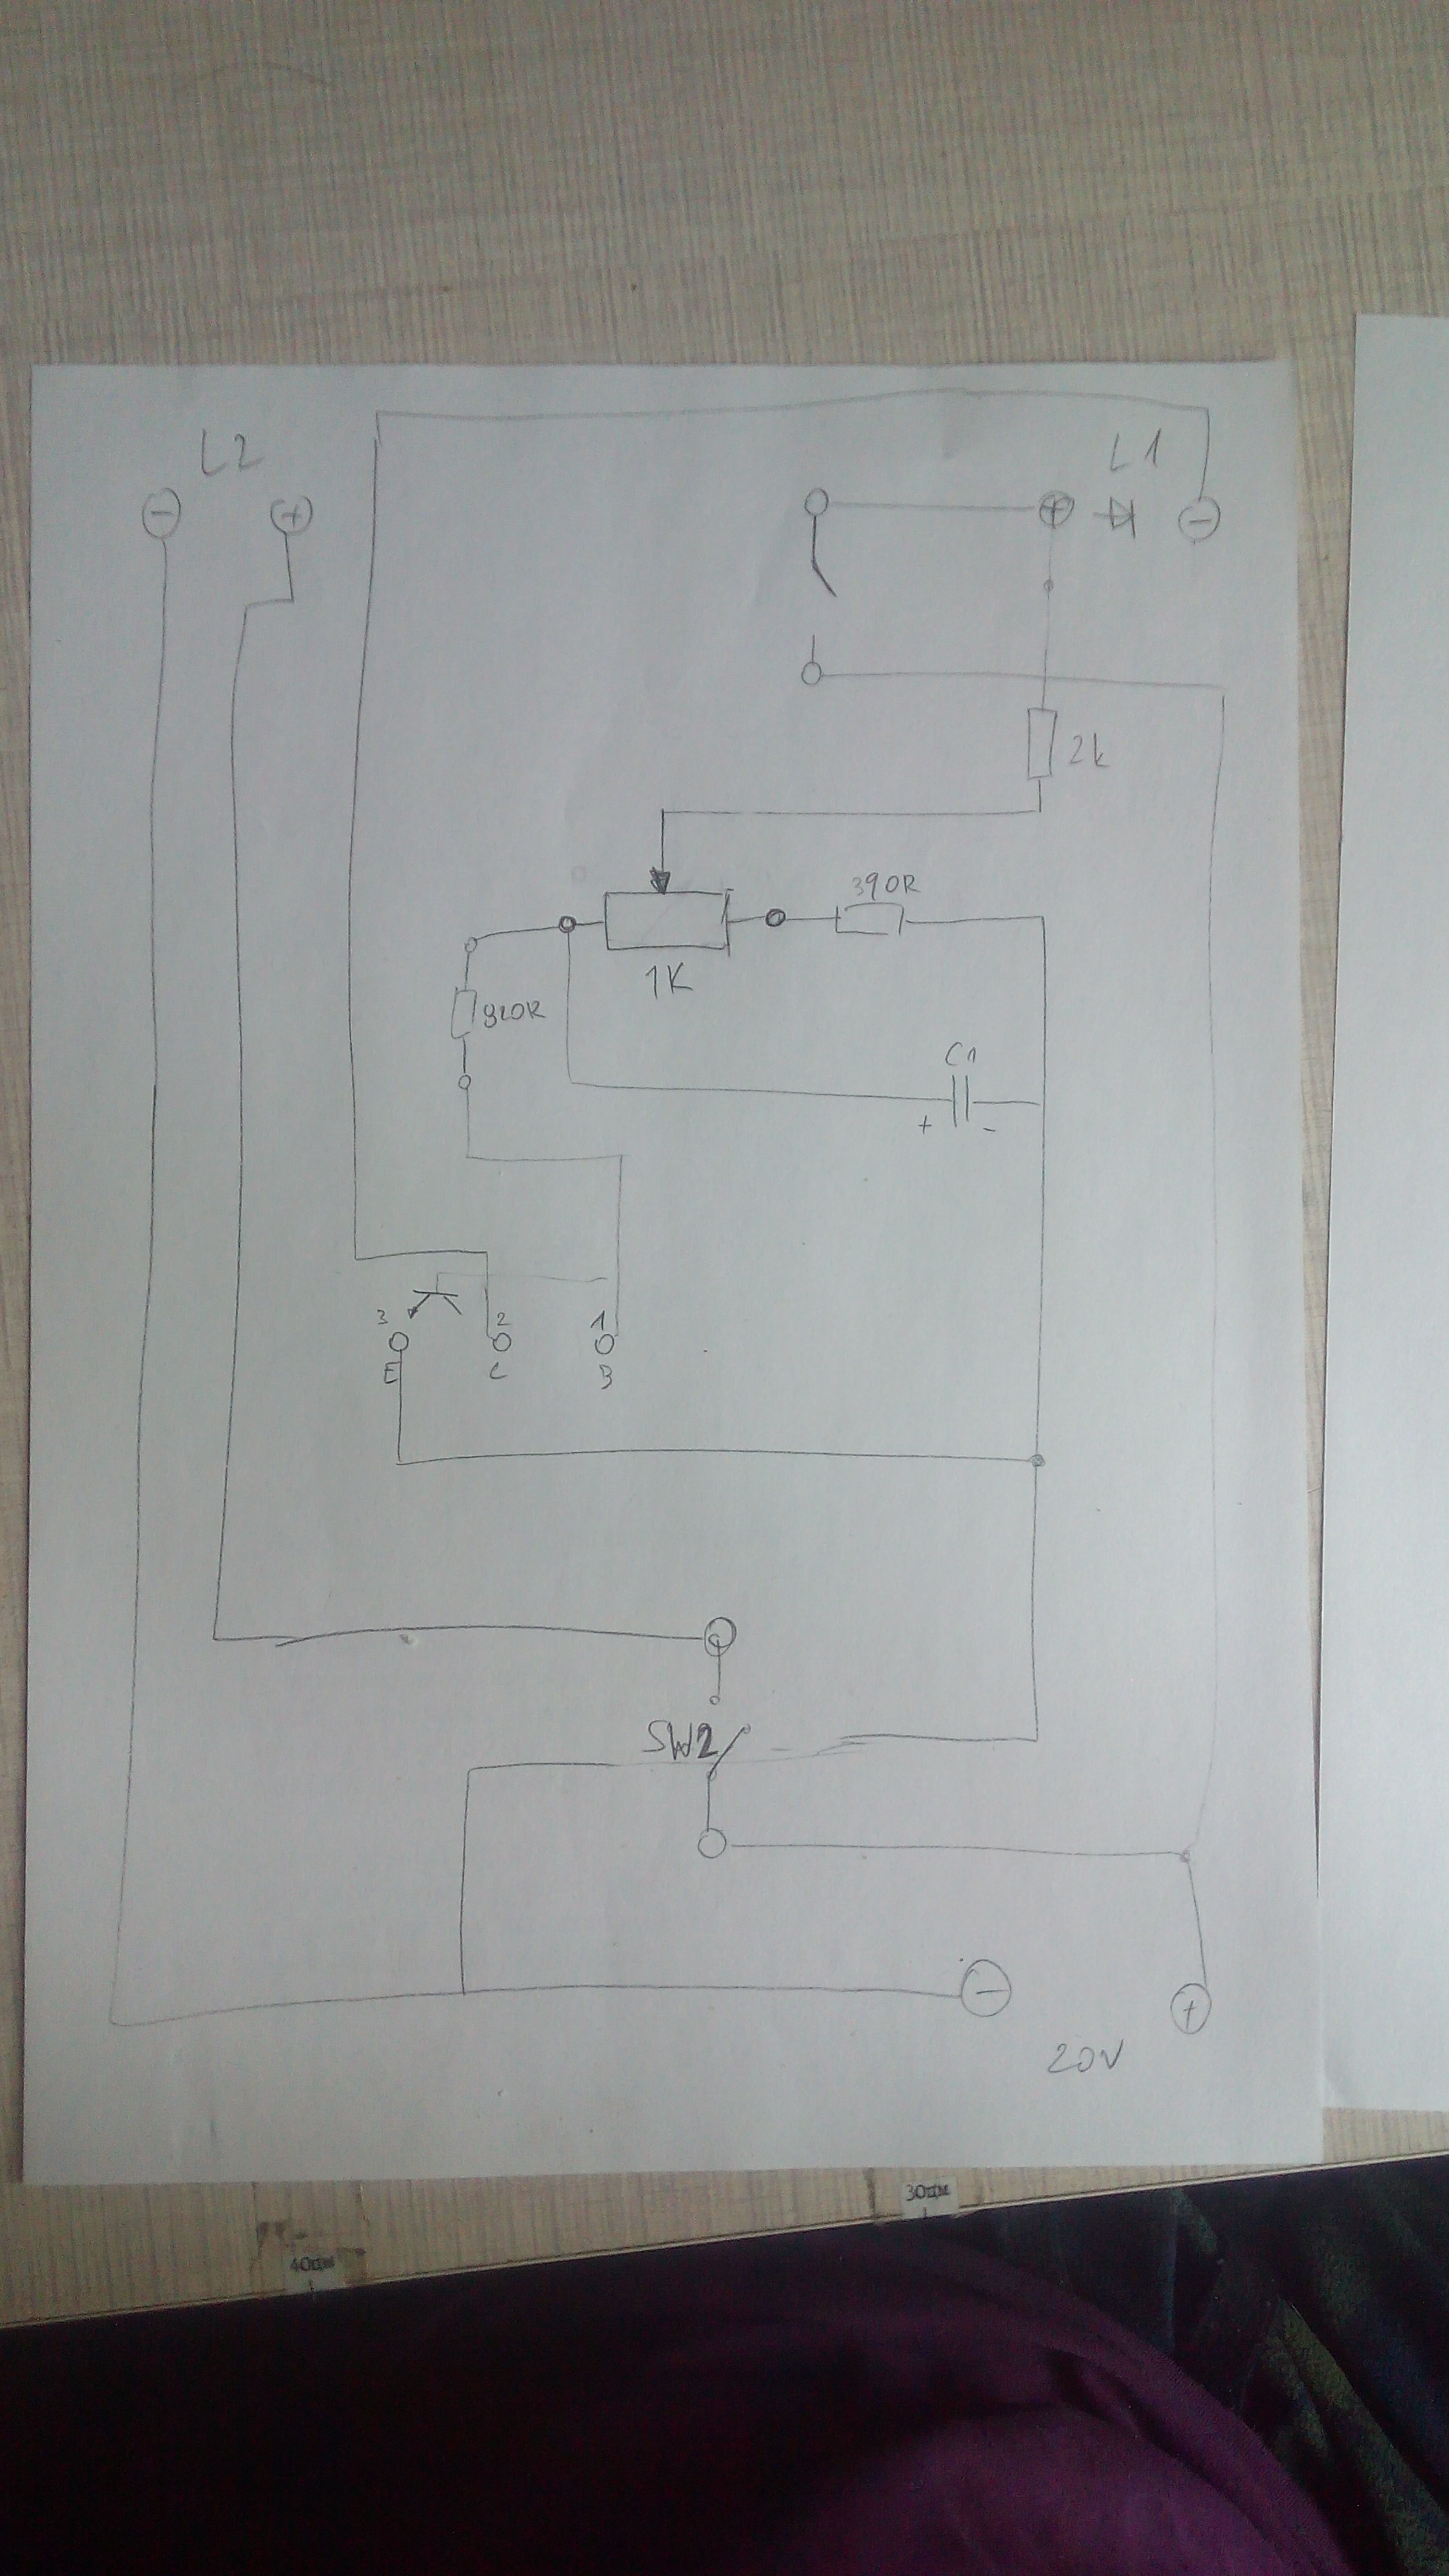 L2
L1
- +
+ -
2k
390R
1K
820R
C1
+ -
3 2 1
E C B
SW2
- +
20V
30дм
40дм